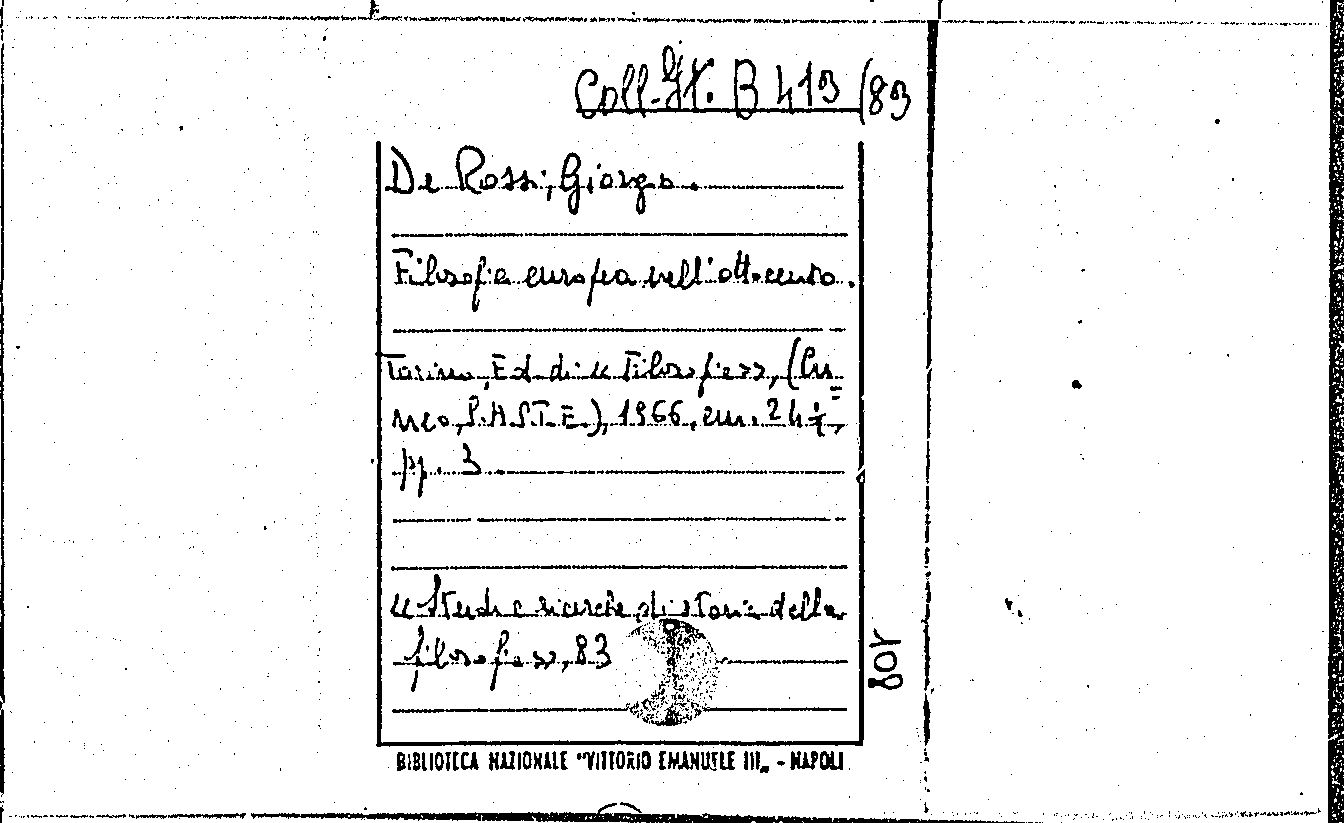 Coll. It. B 413 (83
De Rossi, Giorgo.
Filosofia europea nell'ottocento.
Torino, Ed. di « Filosofia », (Cu=
neo, S.A.S.T.E.), 1966, cm. 24 ½,
pp. 3
« Studi e ricerche di storia della
filosofia », 83
108
BIBLIOTECA NAZIONALE "VITTORIO EMANUELE III„ - NAPOLI